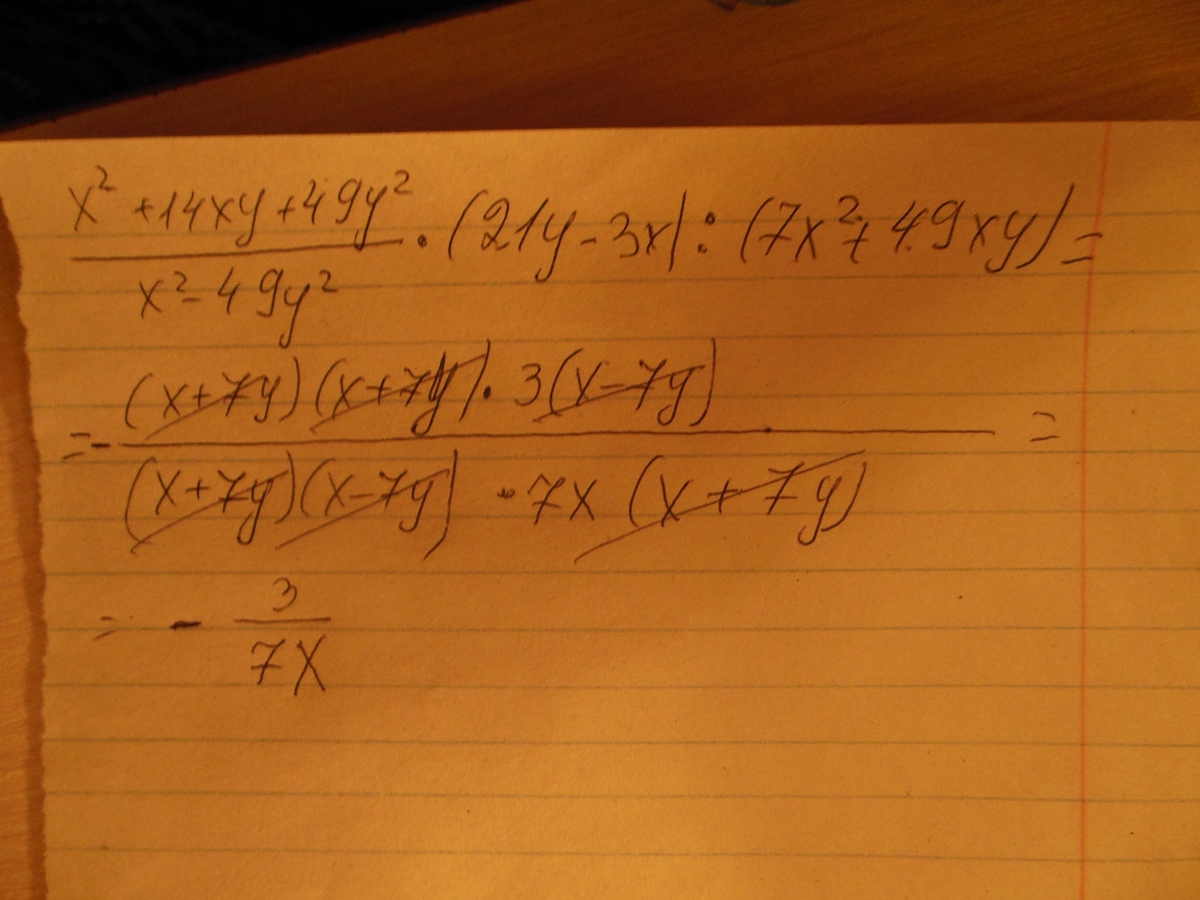 x² + 14xy + 49y²
x² - 49y²
· (21y - 3x) : (7x² + 49xy) =
= - (x + 7y)(x + 7y) · 3(x - 7y)
(x + 7y)(x - 7y) · 7x (x + 7y)
=
= - 3
7x